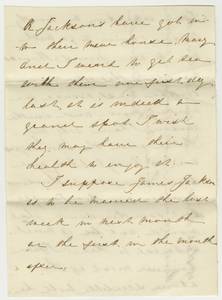 R Jacksons have got in
to their new house. Mary
and I went to get tea
with them one first day
last it is indeed a
grand spot I wish
they may have their
health to enjoy it. —
I suppose James Jackson
is to be married the last
week in next month
or the first in the month
after,